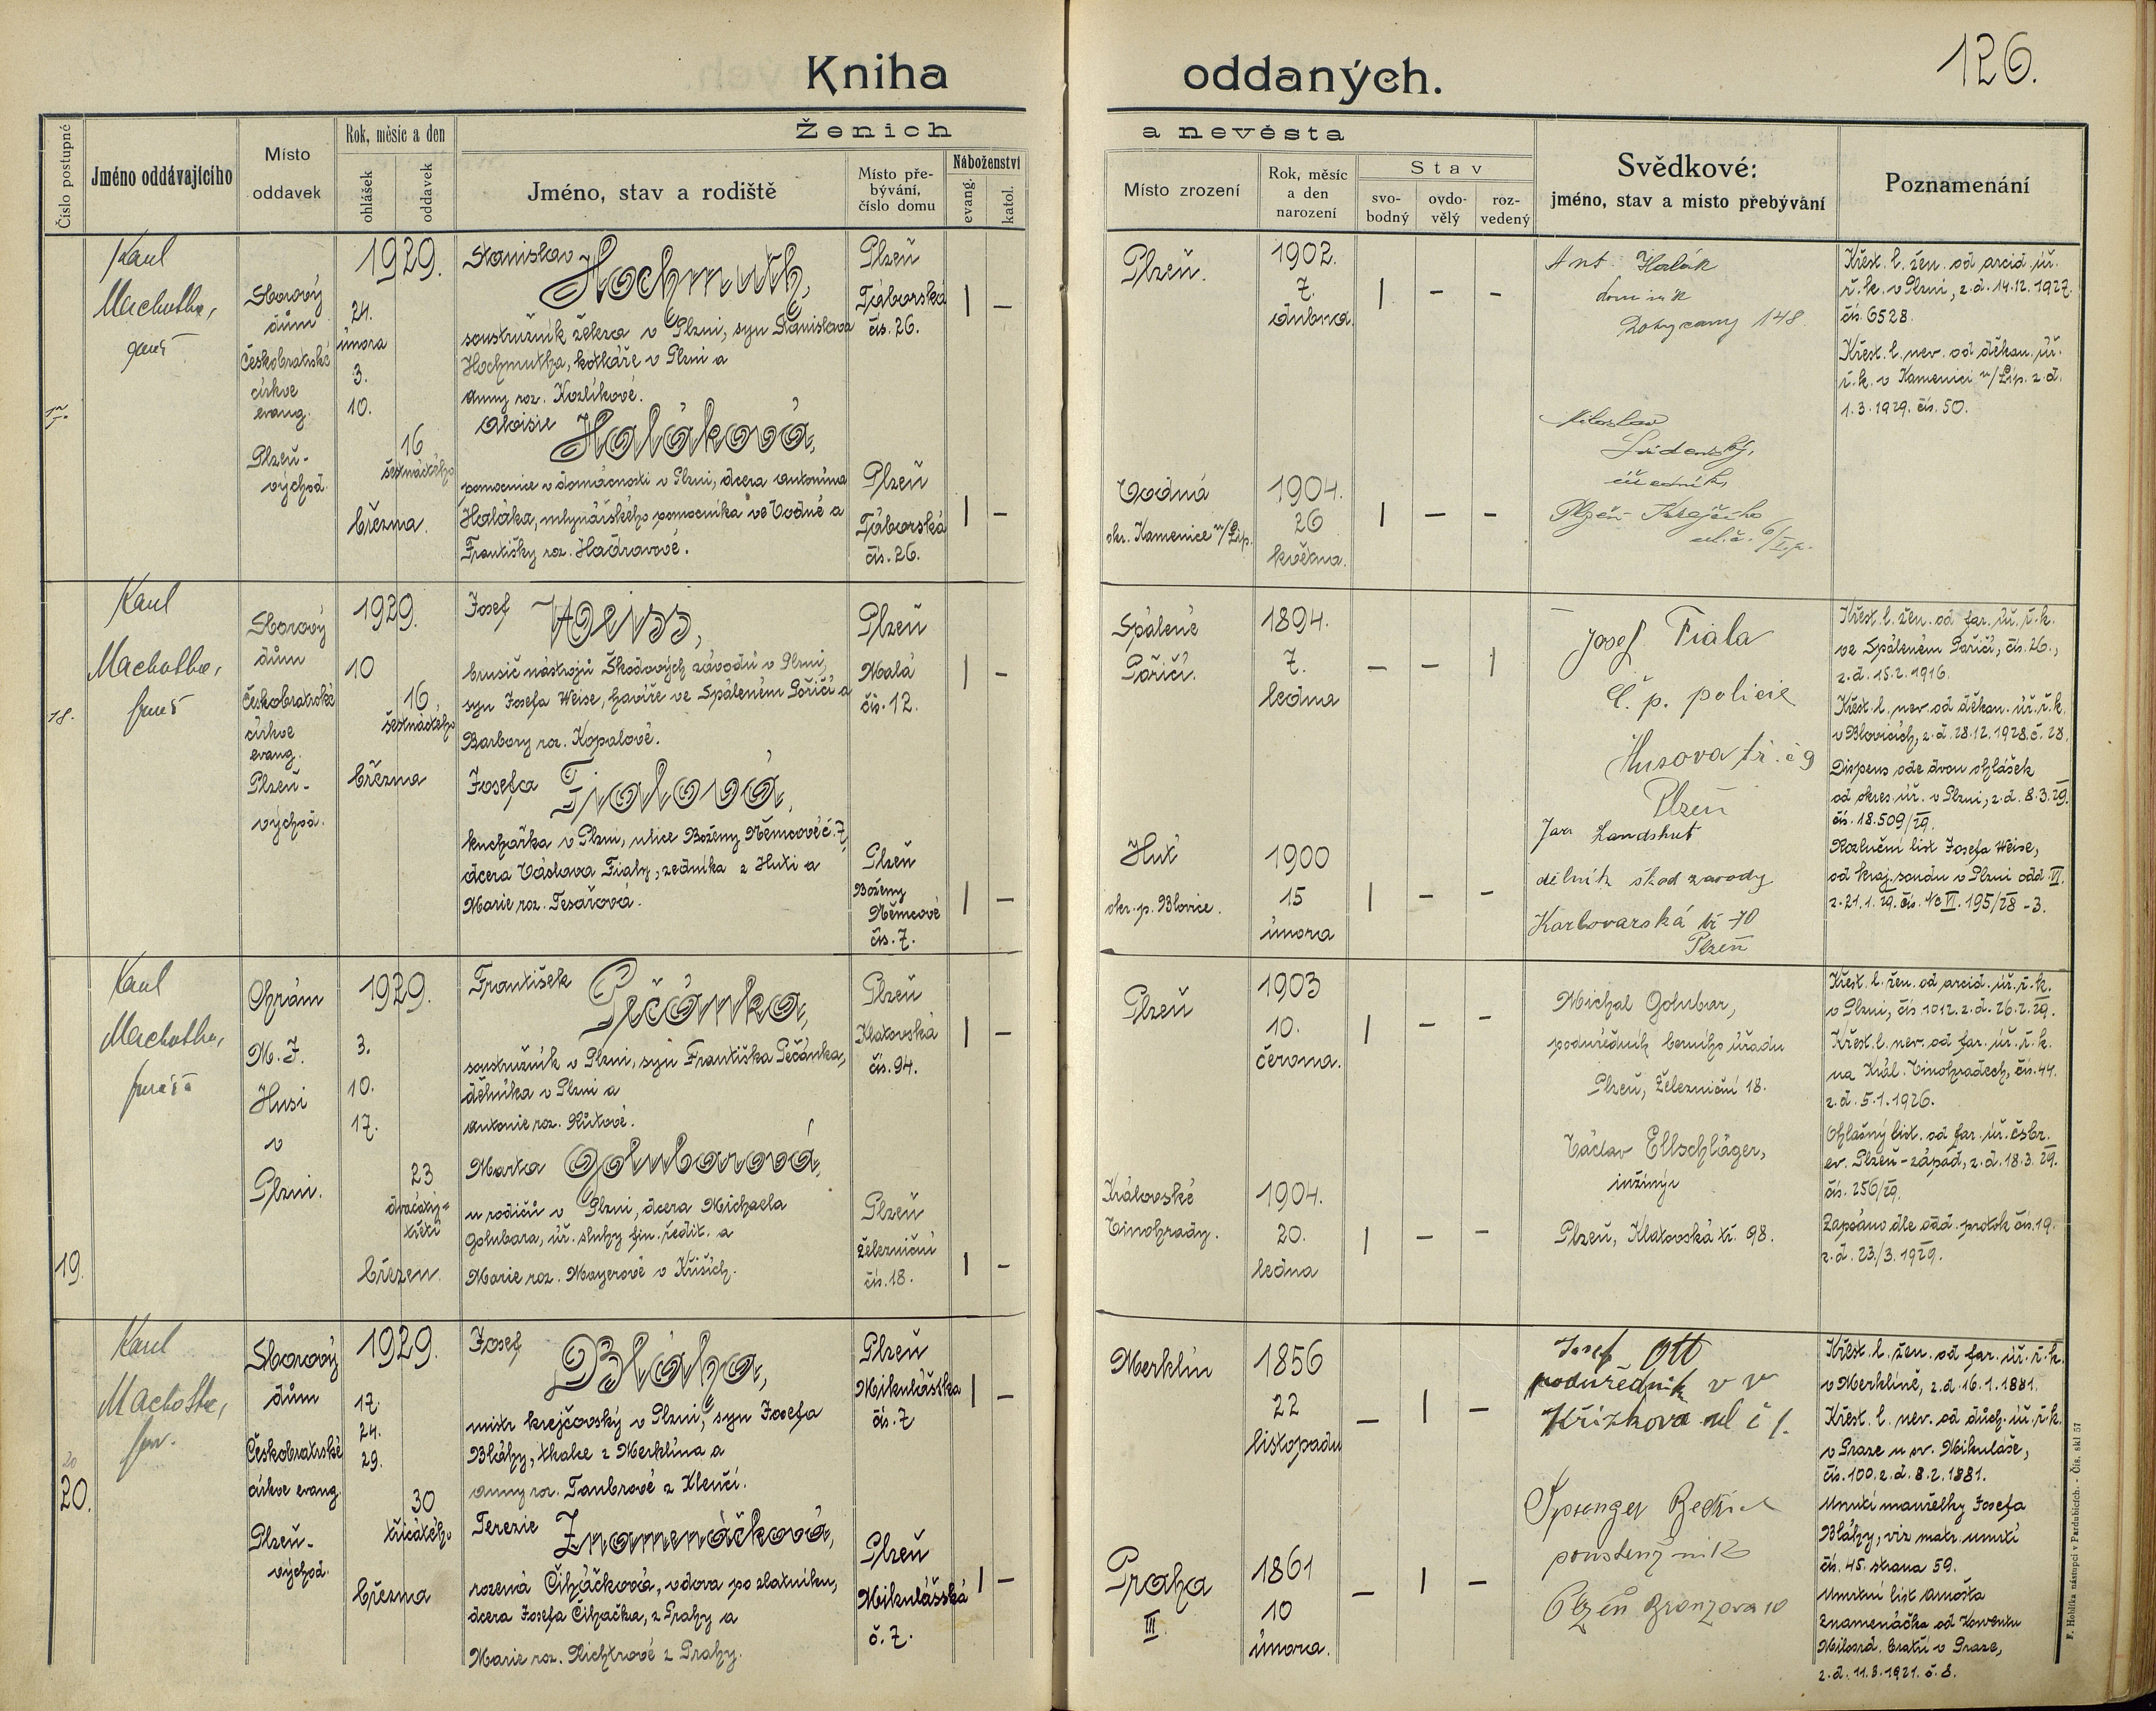 Kniha oddaných.
126.
Číslo postupné
Jméno oddávajícího
Místo
oddavek
Rok, měsíc a den
ohlášek
oddavek
Ženich a nevěsta
Jméno, stav a rodiště
Místo pře-
bývání,
číslo domu
Náboženství
evang.
katol.
Místo zrození
Rok, měsíc
a den
narození
Stav
svo-
bodný
ovdo-
vělý
roz-
vedený
Svědkové:
jméno, stav a místo přebývání
Poznamenání
17.
Karel
Machotka,
Sborový
dům
Českobratrské
církve
evang.
Plzeň-
východ
1929.
24.
února
3.
10.
16
šestnáctého
března.
Stanislav
Hochmuth,
soustružník železa v Plzni, syn Stanislava
Hochmutha, kotláře v Plzni a
Anny roz. Kozlíkové.
Plzeň
Táborská
čís. 26.
| –
Plzeň.
1902.
7.
dubna.
| – –
Aloisie
Haláková,
pomocnice v domácnosti v Plzni, dcera Antonína
Haláka, mlynářského pomocníka ve Vodné a
Františky roz. Hadravové.
Plzeň
Táborská
čís. 26.
| –
Vodná
okr. Kamenice n/Lip.
1904.
26
května.
| – –
Ant. Halák
domink
148
Miloslav
úředník,
Plzeň Krejčího
ul. č. 6/I.p.
Křest. l. žen. od arcid. úř.
ř. k. v Plzni, z. d. 14.12.1927.
čís. 6528.
Křest. l. nev. od děkan. úř.
ř. k. v Kamenici n/Lip. z. d.
1.3.1929. čís. 50.
18.
Karel
Machotka,
Sborový
dům
Českobratrské
církve
evang.
Plzeň-
východ.
1929.
10
16.
šestnáctého
března
Josef
Weiss,
brusič nástrojů Škodových závodů v Plzni,
syn Josefa Weise, havíře ve Spáleném Poříčí a
Barbory roz. Kopalové.
Plzeň
Malá
čís. 12.
| –
Spálené
Poříčí.
1894.
7.
ledna
– – |
Josefa
Fialová,
kuchařka v Plzni, ulice Boženy Němcové č. 7,
dcera Václava Fialy, zedníka z Hutí a
Marie roz. Tesařová.
Plzeň
Boženy
Němcové
čís. 7.
| –
Huť
okr. p. Blovice.
1900
15
února
| – –
Josef Fiala
Č. p. policie
Husova tř. č 9
Plzeň
Jan Landshut
dělník škod zavody
Karlovarská tř 70
Plzeň
Křest. l. žen. od far. úř. ř. k.
ve Spáleném Poříčí, čís. 26.,
z. d. 15.2.1916.
Křest. l. nev. od děkan. úř. ř. k.
v Blovicích, z. d. 28.12.1928. č. 28.
Dispens ode dvou ohlášek
od okres. úř. v Plzni, z. d. 8.3.29.
čís. 18.509/29.
Rozlučni list Josefa Weise,
od kraj. soudu v Plzni odd. VI.
z. 21.1.29. čís. Nc VI. 195/28-3.
19.
Karel
Machotka,
Chrám
M. J.
Husi
v
Plzni.
1929.
3.
10.
17.
23
dvacátý-
třetí
březen.
František
Pečánka,
soustružník v Plzni, syn Františka Pečánka,
dělníka v Plzni a
Antonie roz. Růtové.
Plzeň
Klatovská
čís. 94.
| –
Plzeň
1903
10.
června.
| – –
Marta
Golubarová,
u rodičů v Plzni, dcera Michaela
Golubara, úř. sluhy fin. ředit. a
Marie roz. Mayerové v Křiších.
Plzeň
Železniční
čís. 18.
| –
Královské
Vinohrady.
1904.
20.
ledna
| – –
Michal Golubar,
podúředník berního úřadu
Plzeň, Železniční 18.
Václav Ellschläger,
inžinýr
Plzeň, Klatovská tř. 98.
Křest. l. žen. od arcid. úř. ř. k.
v Plzni, čís. 1012. z. d. 26.2.29.
Křest. l. nev. od far. úř. ř. k.
na Král. Vinohradech, čís. 44.
z. d. 5.1.1926.
Ohlašný list. od far. úř. čsbr.
ev. Plzeň-západ, z. d. 18.3.29.
čís. 256/29.
Zapsáno dle odd. protok čís. 19.
z. d. 23/3.1929.
20
20.
Karel
Machotka,
Sborový
dům
Českobratrské
církve evang.
Plzeň-
východ.
1929.
17.
24.
29.
30
třicátého
března
Josef
Bláha,
mistr krejčovský v Plzni, syn Josefa
Bláhy, tkalce z Merklína a
Anny roz. Taubrové z Klenčí.
Plzeň
Mikulášska
čís. 7
| –
Merklín
1856
22
listopadu
– | –
Terezie
Znamenáčková,
rozená Čiháčková, vdova po zlatníku,
dcera Josefa Čiháčka, z Prahy a
Marie roz. Richtrové z Prahy.
Plzeň
Mikulášská
č. 7.
| –
Praha
III.
1861
10
února.
– | –
Josef Ott
podúředník v v
Křížkova ul č 1.
Sprenger Bedřich
Plzeň 10
Křest. l. žen. od far. úř. ř. k.
v Merklíně, z. d. 16.1.1881.
Křest. l. nev. od duch. úř. ř. k.
v Praze u sv. Mikuláše,
čís. 100. z. d. 8.2.1881.
Úmrtí manželky Josefa
Bláhy, viz matr. úmrtí
čís. 45. strana 59.
Úmrtní list Amošta
Znamenáčka od Konventu
Milosrd. bratří v Praze,
z. d. 11.3.1921. č. 8.
F. Hoblíka nástupci v Pardubicích. - Čís. skl 57